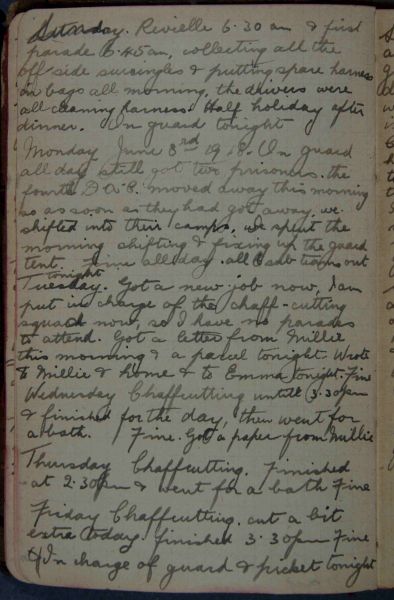 Sunday. Revielle 6.30 am & first
parade 6.45 am, collecting all the
off side surcingles & putting spare harness
in bags all morning. the drivers were
all cleaning harness. Half holiday after
dinner. On guard tonight
Monday June 3rd 1918. On guard
all day still got two prisoners. the
fourth D.A.C. moved away this morning
so as soon as they had got away, we
shifted into their camps, we spent the
morning shifting & fixing up the guard
tent. Fine all day. all sub teams out
tonight
Tuesday. Got a new job now, I am
put in charge of the chaff-cutting
squad now, so I have no parades
to attend. Got a letter from Millie
this morning & a parcel tonight. Wrote
to Millie & home & to Emma tonight. Fine
Wednesday Chaffcutting until 3.30 pm
& finished for the day, then went for
a bath. Fine. Got a paper from Millie
Thursday Chaffcutting. Finished
at 2.30 pm & went for a bath Fine
Friday Chaffcutting. cut a bit
extra today. finished 3.30 pm Fine
In charge of guard & picket tonight